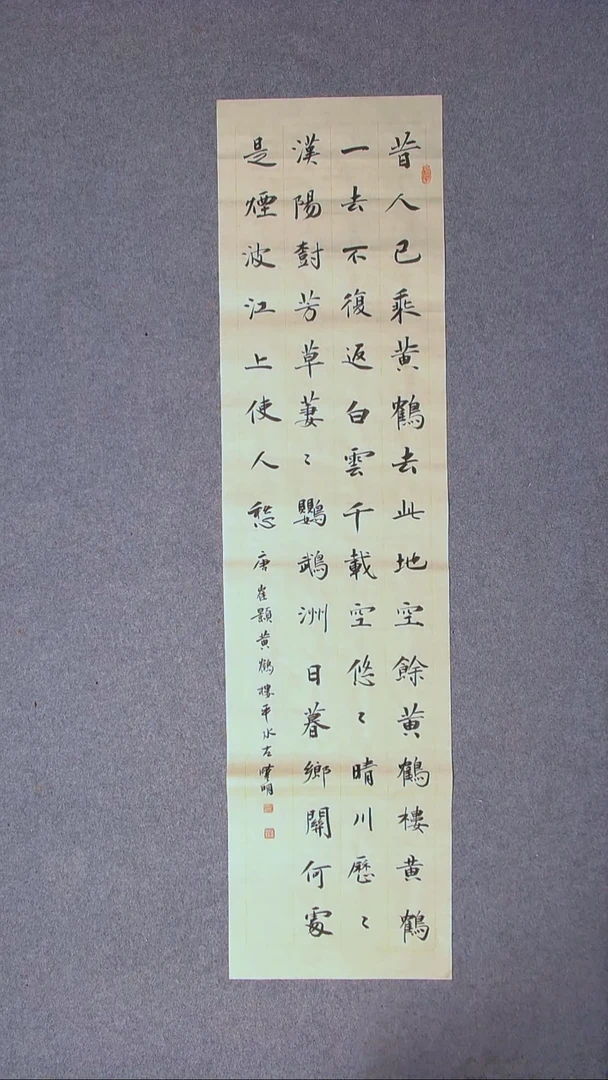 昔人已乘黄鶴去此地空餘黄鶴樓黄鶴
一去不復返白雲千載空悠〻晴川歷〻
漢陽尌芳草萋〻鸚鵡洲日暮鄉關何處
是煙波江上使人愁 唐崔顥黄鶴樓平水左明